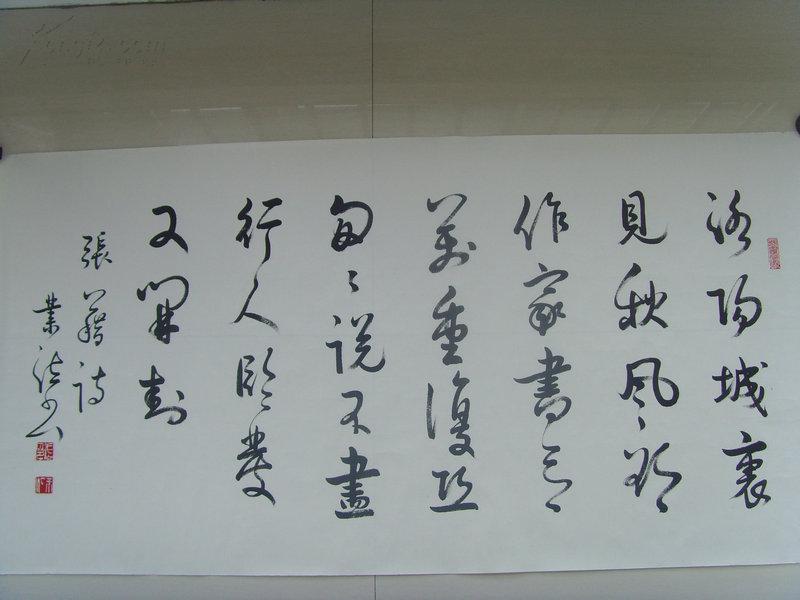 洛陽城裏
見秋風欲
作家書意
萬重復恐
匆〻説不盡
行人臨發
又開封
張籍詩
業